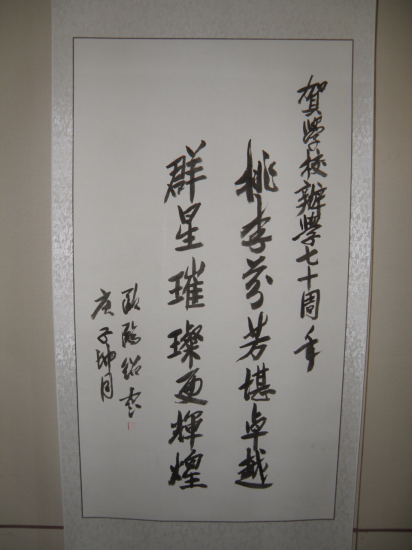 賀學校辦學七十周年
桃李芬芳堪卓越
群星璀璨更輝煌
庚子坤月